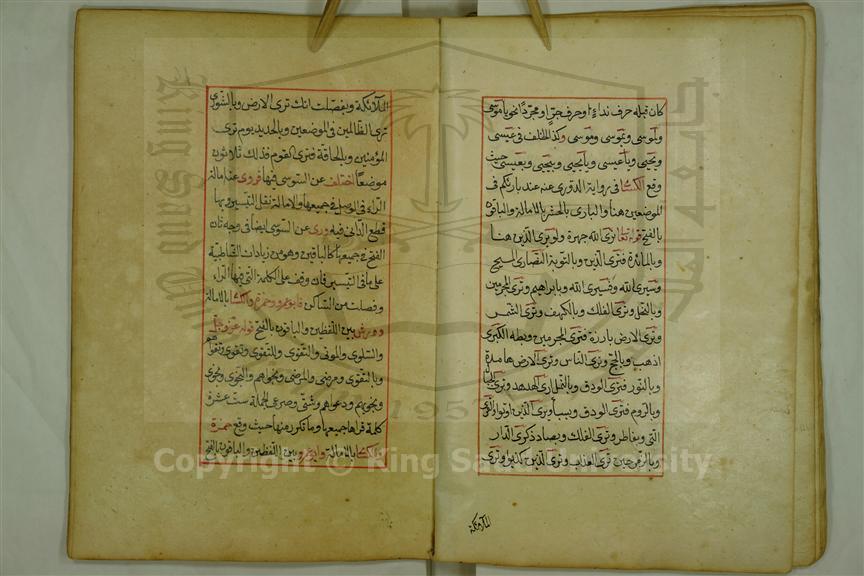 كان قبله حرف نداء او حرف جر او مجردا نحو يا موسى
وبموسى وموسى وكذا اختلف في عيسى
ويحيى ويا عيسى ويا يحيى وبيحيى وبعيسى حيث
وقع الكسائي في رواية الدوري عنه عند بارئكم في
الموضعين هنا والبارئ بالحشر بالامالة والباقون
بالفتح قوله تعالى نرى الله جهرة ولو يرى الذين هنا
وبالمائدة فترى الذين وبالتوبة النصارى المسيح
وسيرى الله وفسيرى الله وبابراهيم وترى المجرمين
وبالنحل وترى الفلك وبالكهف وترى الشمس
وترى الارض بارزة فترى المجرمين وبطه الكبرى
اذهب وبالحج وترى الناس وترى الارض هامدة
وبالنور فترى الودق وبالنمل ارى الهدهد وترى
وبالروم فترى الودق وبسبأ ويرى الذين اوتوا
التي وبفاطر وترى الفلك وبصاد ذكرى الدار
وبالزمر حين ترى العذاب وترى الذين كذبوا وترى
الملائكة
الملائكة وبفصلت انك ترى الارض وبالشورى
ترى الظالمين في الموضعين وبالحديد يوم ترى
المؤمنين وبالحاقة فترى القوم فذلك ثلاثون
موضعا اختلف عن السوسي فيها فروى عنه امالة
الراء في الوصل في جميعها والامالة نقل التيسير وبها
قطع الداني فيه وروى عن السوسي ايضا في وجه ثان
الفتح في جميعها كالباقين وهو من زيادات الشاطبية
على ما في التيسير فان وقف على الكلمة التي فيها الراء
وفصلت من الساكن فابو عمرو وحمزة والكسائي بالامالة
وورش بين اللفظين والباقون بالفتح قوله عز وجل
والسلوى والموتى والتقوى وللتقوى وتقوى
وبالتقوى ومرضى والمرضى ونجواهم والنجوى ونجوى
ونجويهم ودعواهم وشتى وصرعى الجملة ست عشرة
كلمة قراها جميعها وما تكرر منها حيث وقع حمزة
والكسائي بالامالة وابو عمرو بين اللفظين والباقون بالفتح
King Saud University
جامعة الملك سعود
1957
Copyright © King Saud University